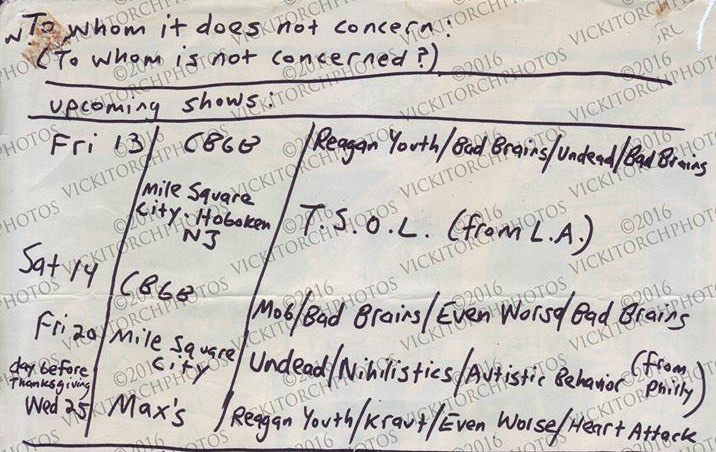 To whom it does not concern:
(To whom is not concerned?)
upcoming shows:
Fri 13 / CBGB / Reagan Youth/Bad Brains/Undead/Bad Brains
Mile Square
City. Hoboken
NJ
T.S.O.L. (from L.A.)
Sat 14
CBGB
Mob/Bad Brains/Even Worse/Bad Brains
Fri 20
Mile Square
City
Undead/Nihilistics/Autistic Behavior (from
Philly)
day before
Thanksgiving
Wed 25 / Max's / Reagan Youth/Kraut/Even Worse/Heart Attack
©2016
VICKITORCHPHOTOS